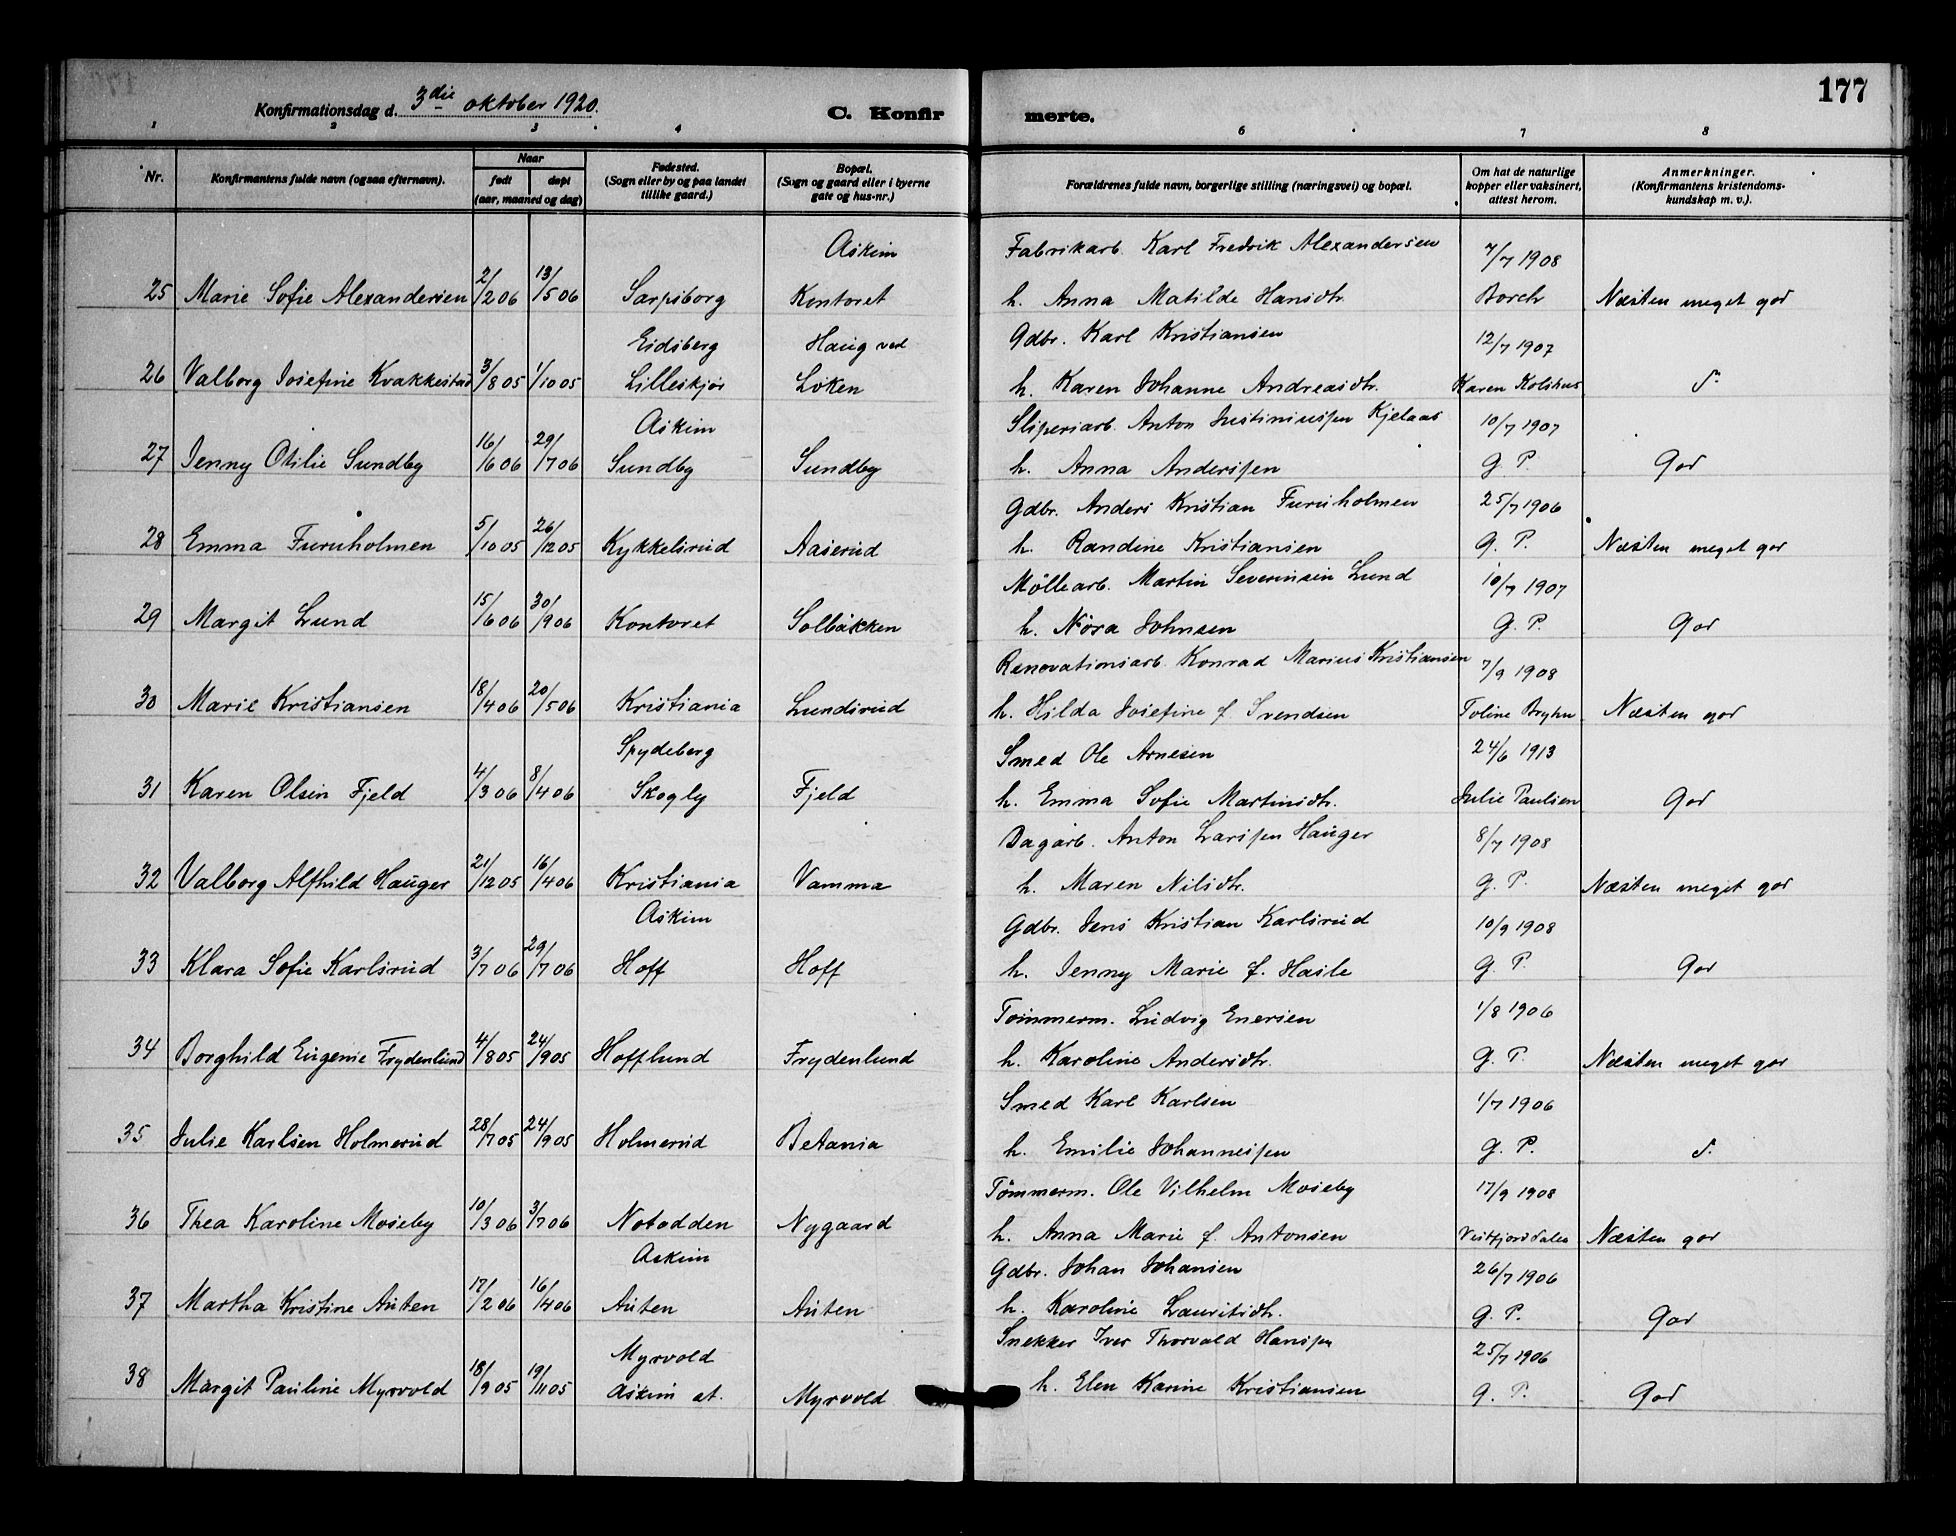 177
Konfirmationsdag d. 3die oktober 1920.
C. Konfirmerte.
1 2 3 4 6 7 8
Nr.
Konfirmantens fulde navn (ogsaa efternavn).
Naar
født
døpt
(aar, maaned og dag)
Fødested.
(Sogn eller by og paa landet
tillike gaard.)
Bopæl.
(Sogn og gaard eller i byerne
gate og hus-nr.)
Forældrenes fulde navn, borgerlige stilling (næringsvei) og bopæl.
Om hat de naturlige
kopper eller vaksinert,
attest herom.
Anmerkninger.
(Konfirmantens kristendoms-
kundskap m. v.).
Askim Fabrikarb. Karl Fredrik Alexandersen 7/7 1908
25 Marie Sofie Alexandersen 2/2 06 13/5 06 Sarpsborg Kontoret h. Anna Matilde Hansdtr. Borch Næsten meget god
Eidsberg Haug ved Gdbr. Karl Kristiansen 12/7 1907
26 Valborg Josefine Kvakkestad 3/8 05 1/10 05 Lilleskjør Løken h. Karen Johanne Andreasdtr. Karen Kolshus d.
Askim Sliperiarb. Anton Justiniussen Kjelaas 10/7 1907
27 Jenny Otilie Sundby 16/6 06 29/7 06 Sundby Sundby h. Anna Anderssen G. P. God
Gdbr. Anders Kristian Furuholmen 25/7 1906
28 Emma Furuholmen 5/10 05 26/12 05 Kykkelsrud Aaserud h. Randine Kristiansen G. P. Næsten meget god
Møllearb. Martin Severinsen Lund 10/7 1907
29 Margit Lund 15/6 06 30/9 06 Kontoret Solbakken h. Nora Johnsen G. P. God
Renovationsarb. Konrad Marius Kristiansen 7/9 1908
30 Marie Kristiansen 18/4 06 20/5 06 Kristiania Lundsrud h. Hilda Josefine f. Svendsen Toline Bryhn Næsten god
Spydeberg Smed Ole Arnesen 24/6 1913
31 Karen Olsen Fjeld 4/3 06 8/4 06 Skogly Fjeld h. Emma Sofie Martinsdtr. Julie Paulsen God
Dagarb. Anton Larssen Hauger 8/7 1908
32 Valborg Alfhild Hauger 21/12 05 16/4 06 Kristiania Vamma h. Maren Nilsdtr. G. P. Næsten meget god
Askim Gdbr. Jens Kristian Karlsrud 10/9 1908
33 Klara Sofie Karlsrud 3/7 06 29/7 06 Hoff Hoff h. Jenny Marie f. Hasle G. P. God
Tømmerm. Ludvig Enersen 1/8 1906
34 Borghild Eugenie Frydenlund 4/8 05 24/9 05 Hofflund Frydenlund h. Karoline Andersdtr. G. P. Næsten meget god
Smed Karl Karlsen 1/7 1906
35 Julie Karlsen Holmerud 28/7 05 24/9 05 Holmerud Betania h. Emilie Johannessen G. P. d.
Tømmerm. Ole Vilhelm Moseby 17/9 1908
36 Thea Karoline Moseby 10/3 06 3/7 06 Notodden Nygaard h. Anna Marie f. Antonsen Vestfjorddalen Næsten god
Askim Gdbr. Johan Johansen 26/7 1906
37 Martha Kristine Auten 17/2 06 16/4 06 Auten Auten h. Karoline Lauritsdtr. G. P. God
Myrvold Snekker Iver Thorvald Hanssen 25/7 1906
38 Margit Pauline Myrvold 18/9 05 19/11 05 Askim st. Myrvold h. Elen Karine Kristiansen G. P. God